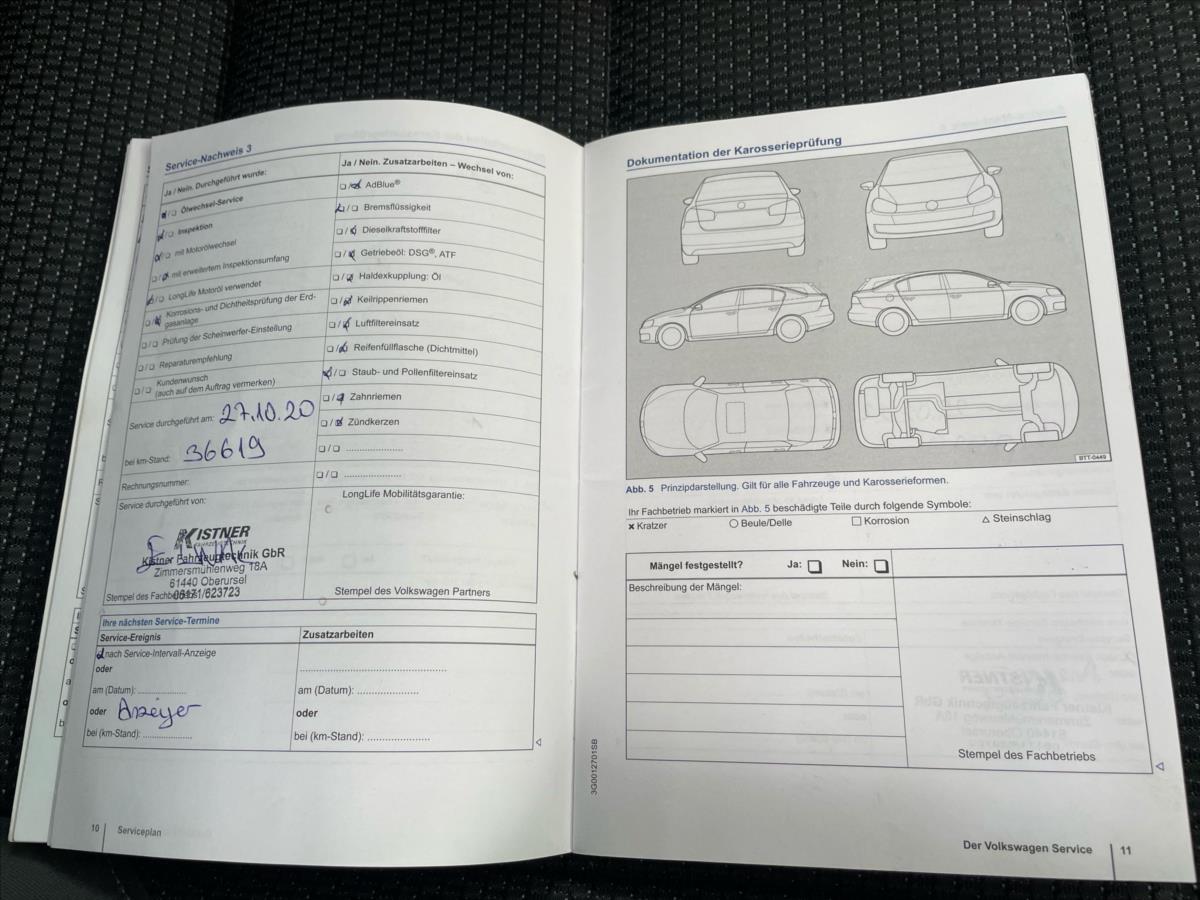 Service-Nachweis 3
Ja / Nein. Durchgeführt wurde:
❑/❑ Ölwechsel-Service
❑/❑ Inspektion
❑/❑ mit Motorölwechsel
❑/❑ mit erweitertem Inspektionsumfang
❑/❑ LongLife Motoröl verwendet
❑/❑ Korrosions- und Dichtheitsprüfung der Erd-
gasanlage
❑/❑ Prüfung der Scheinwerfer-Einstellung
❑/❑ Reparaturempfehlung
❑/❑ Kundenwunsch
(auch auf dem Auftrag vermerken)
Service durchgeführt am: 27.10.20
bei km-Stand: 36619
Rechnungsnummer:
Service durchgeführt von:
KISTNER
FAHRZEUGTECHNIK
Kistner Fahrzeugtechnik GbR
Zimmersmühlenweg 18A
61440 Oberursel
06171/623723
Stempel des Fachbetriebs
Ja / Nein. Zusatzarbeiten – Wechsel von:
❑/❑ AdBlue®
❑/❑ Bremsflüssigkeit
❑/❑ Dieselkraftstofffilter
❑/❑ Getriebeöl: DSG®, ATF
❑/❑ Haldexkupplung: Öl
❑/❑ Keilrippenriemen
❑/❑ Luftfiltereinsatz
❑/❑ Reifenfüllflasche (Dichtmittel)
❑/❑ Staub- und Pollenfiltereinsatz
❑/❑ Zahnriemen
❑/❑ Zündkerzen
❑/❑ ....................
❑/❑ ....................
LongLife Mobilitätsgarantie:
Stempel des Volkswagen Partners
Ihre nächsten Service-Termine
Service-Ereignis
❑ nach Service-Intervall-Anzeige
oder
am (Datum): ................
oder
bei (km-Stand): ................
Zusatzarbeiten
................................................
am (Datum): ....................
oder
bei (km-Stand): ....................
10 Serviceplan
Dokumentation der Karosserieprüfung
BTT-0449
Abb. 5 Prinzipdarstellung. Gilt für alle Fahrzeuge und Karosserieformen.
Ihr Fachbetrieb markiert in Abb. 5 beschädigte Teile durch folgende Symbole:
× Kratzer ○ Beule/Delle □ Korrosion △ Steinschlag
Mängel festgestellt? Ja: ❑ Nein: ❑
Beschreibung der Mängel:
Stempel des Fachbetriebs
3G0012701SB
Der Volkswagen Service 11